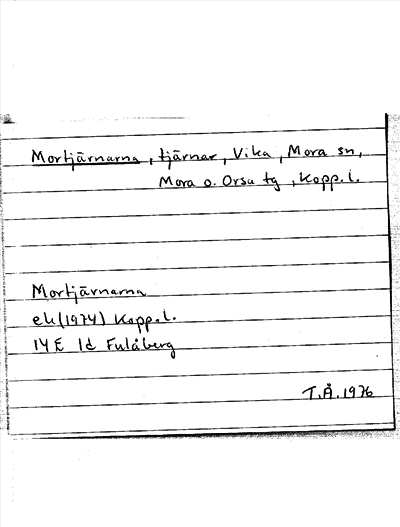 Mortjärnarna, tjärnar, Vika, Mora sn,
Mora o. Orsa tg, Kopp. l.
Mortjärnarna
ek (1974) Kopp. l.
14E 1d Fulåberg
T.Å. 1976